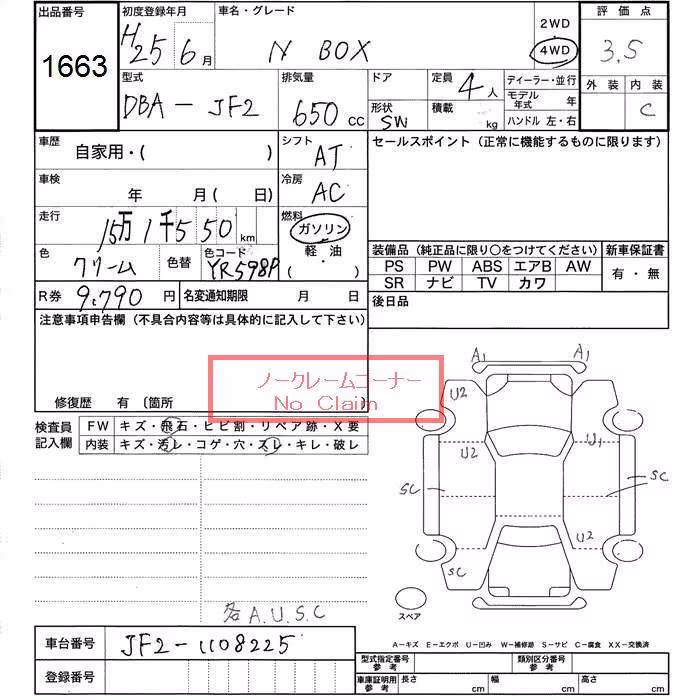 出品番号 初度登録年月 車名・グレード 2WD 評価点
1663 H25 6月 N BOX 4WD 3.5
型式 排気量 ドア 定員 4人 ディーラー・並行 外装 内装
DBA-JF2 650cc 形状 SW 積載 kg モデル年式 年 C
ハンドル 左・右
車歴 自家用・( ) シフト AT セールスポイント(正常に機能するものに限ります)
車検 年 月( 日) 冷房 AC
走行 15万1千550km 燃料 ガソリン
軽・油
( )
色 クリーム 色替 色コード YR598P 装備品(純正品に限り〇をつけてください) 新車保証書
PS PW ABS エアB AW 有・無
SR ナビ TV カワ
R券 9,790円 名変通知期限 月 日 後日品
注意事項申告欄(不具合内容等は具体的に記入して下さい)
ノークレームコーナー
No Claim
修復歴 有(箇所 )
検査員記入欄 FW キズ・飛石・ヒビ割・リペア跡・X要
内装 キズ・汚レ・コゲ・穴・スレ・キレ・破レ
A1 A1
U2
U2 U1
SC SC
U2
SC
スペア
各A.U.S.C
A-キズ E-エクボ U-凹み W-補修跡 S-サビ C-腐食 XX-交換済
車台番号 JF2-1108225
型式指定番号 参考 類別区分番号 参考
登録番号 車庫証明用 参考 長さ cm 幅 cm 高さ cm